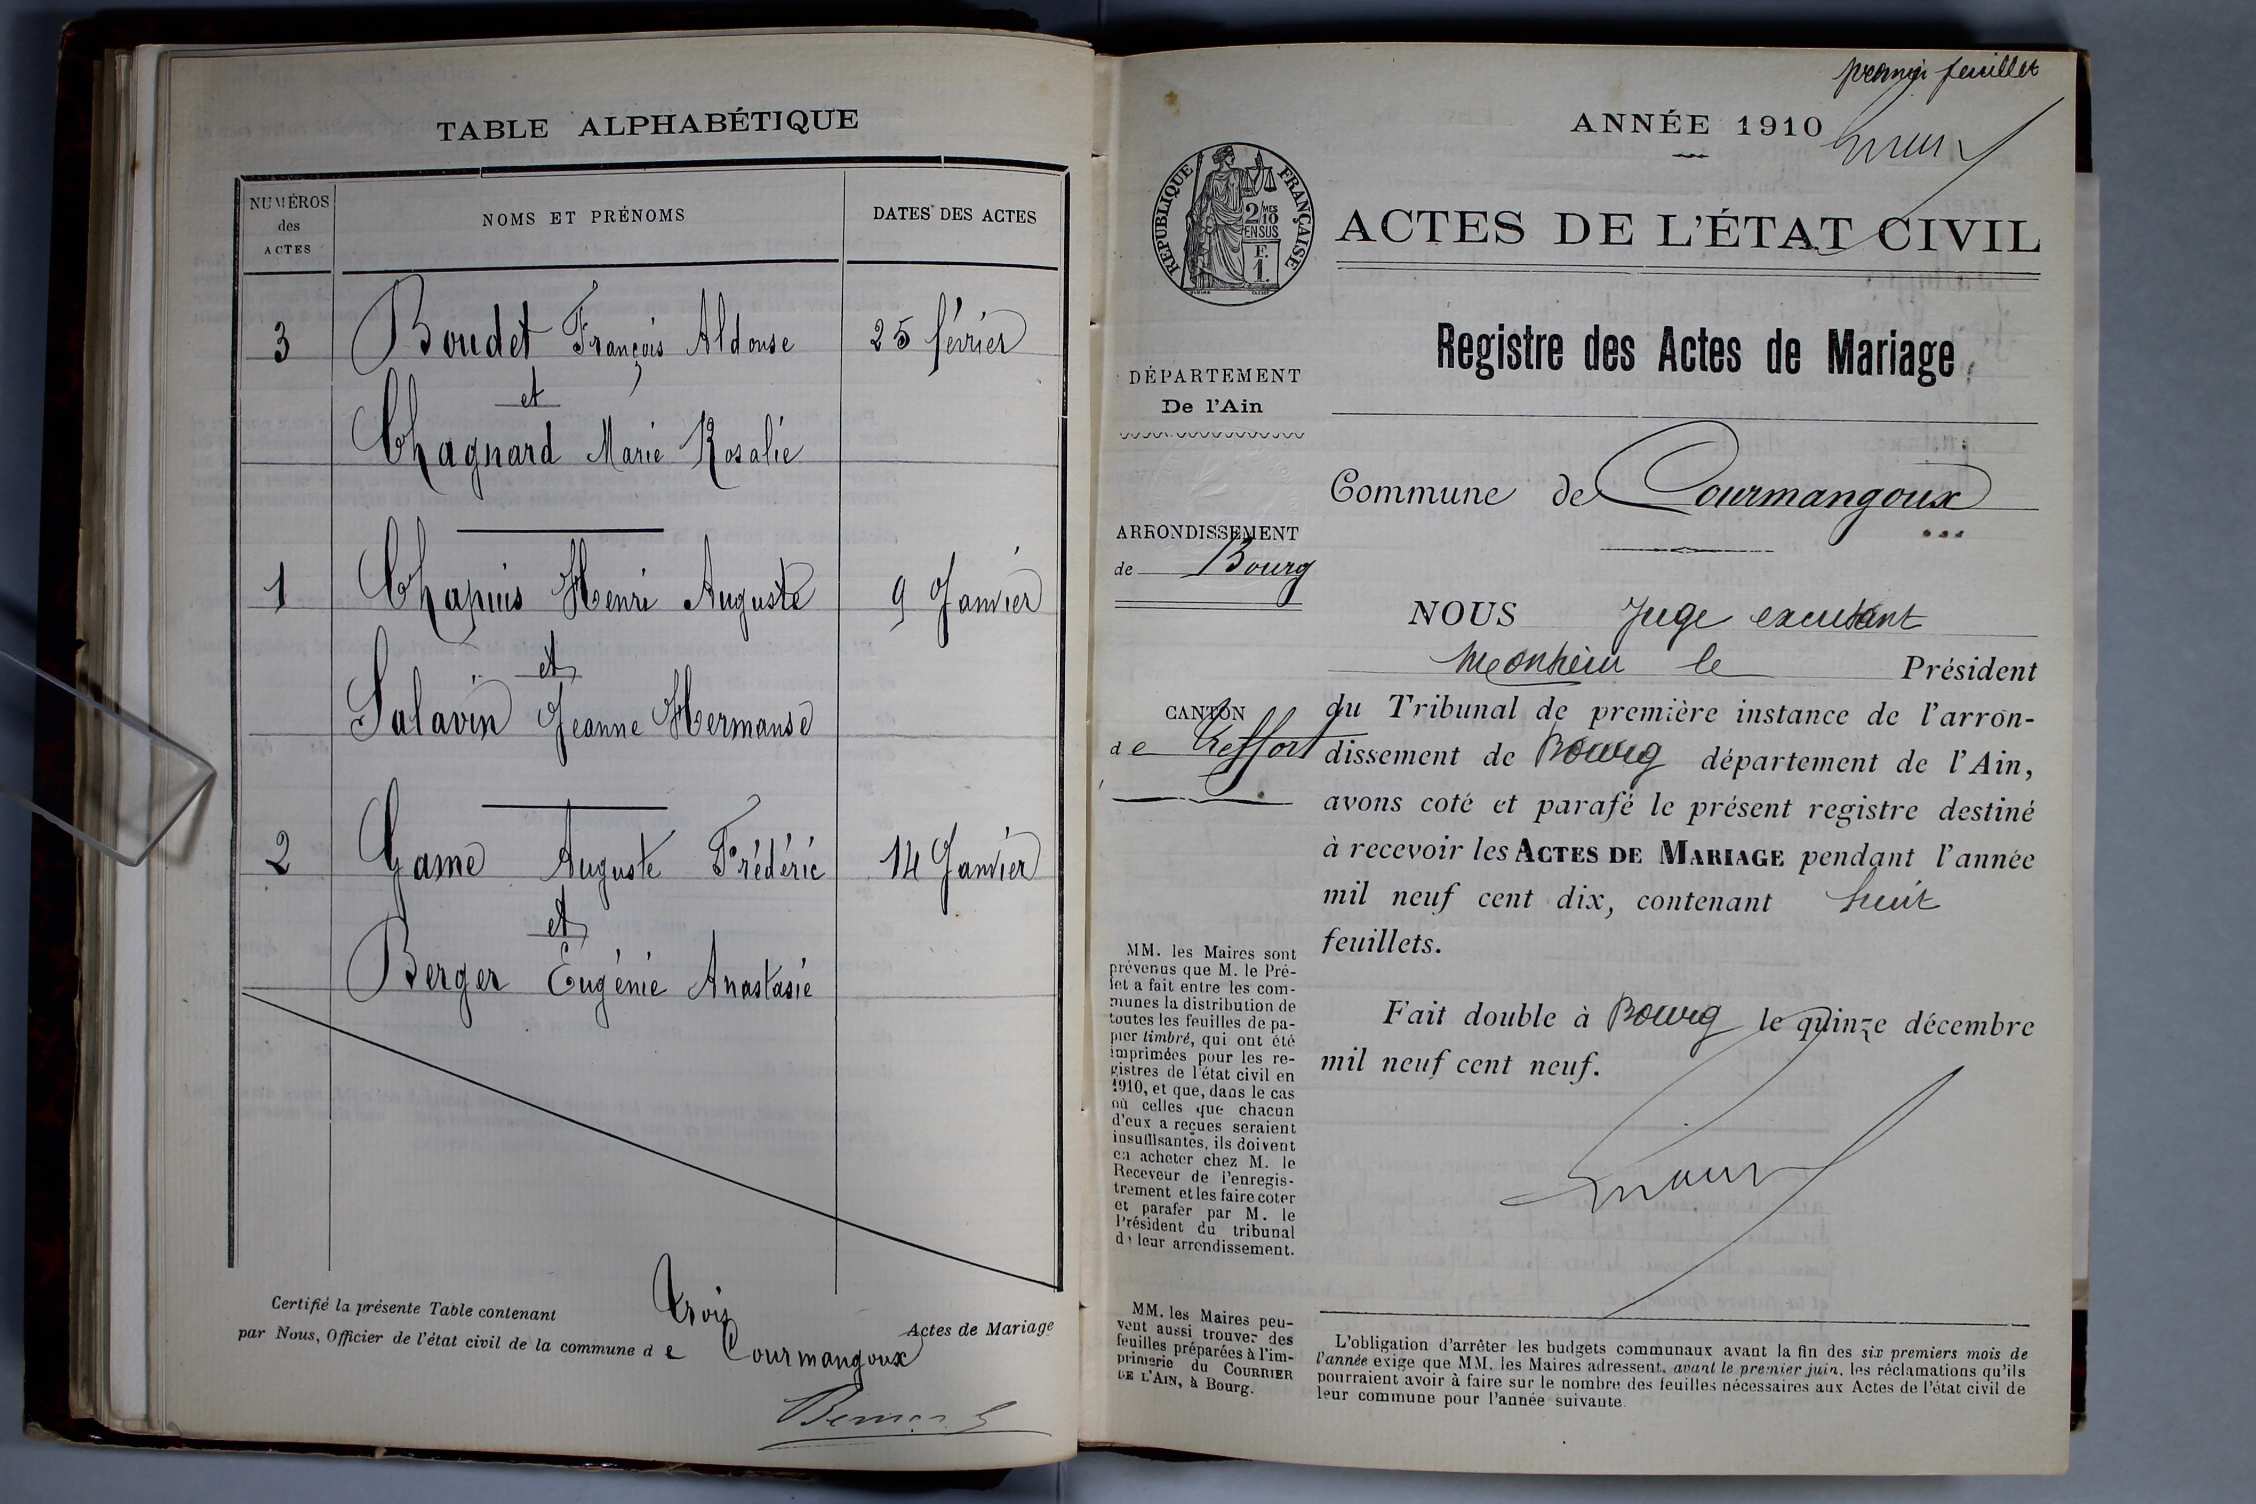 TABLE ALPHABÉTIQUE
NUMÉROS
des
ACTES
NOMS ET PRÉNOMS
DATES DES ACTES
3 Boudet François Aldonse 25 février
et
Chagnard Marie Rosalie
1 Chapuis Henri Auguste 9 Janvier
et
Salavin Jeanne Hermanse
2 Game Auguste Frédéric 14 Janvier
et
Berger Eugénie Anastasie
Certifié la présente Table contenant Trois Actes de Mariage
par Nous, Officier de l'état civil de la commune de Courmangoux
premier feuillet
ANNÉE 1910
RÉPUBLIQUE FRANÇAISE
2/10 MES
EN SUS
F.
1.
ACTES DE L'ÉTAT CIVIL
Registre des Actes de Mariage
DÉPARTEMENT
De l'Ain
ARRONDISSEMENT
de Bourg
CANTON
de Treffort
Commune de Courmangoux
NOUS Juge excusant
Monsieur le Président
du Tribunal de première instance de l'arron-
dissement de Bourg département de l'Ain,
avons coté et parafé le présent registre destiné
à recevoir les ACTES DE MARIAGE pendant l'année
mil neuf cent dix, contenant huit
feuillets.
Fait double à Bourg le quinze décembre
mil neuf cent neuf.
MM. les Maires sont
prévenus que M. le Pré-
fet a fait entre les com-
munes la distribution de
toutes les feuilles de pa-
pier timbré, qui ont été
imprimées pour les re-
gistres de l'état civil en
1910, et que, dans le cas
où celles que chacun
d'eux a reçues seraient
insuffisantes, ils doivent
en acheter chez M. le
Receveur de l'enregis-
trement et les faire coter
et parafer par M. le
Président du tribunal
de leur arrondissement.
MM. les Maires peu-
vent aussi trouver des
feuilles préparées à l'im-
primerie du COURRIER
DE L'AIN, à Bourg.
L'obligation d'arrêter les budgets communaux avant la fin des six premiers mois de
l'année exige que MM. les Maires adressent, avant le premier juin, les réclamations qu'ils
pourraient avoir à faire sur le nombre des feuilles nécessaires aux Actes de l'état civil de
leur commune pour l'année suivante.